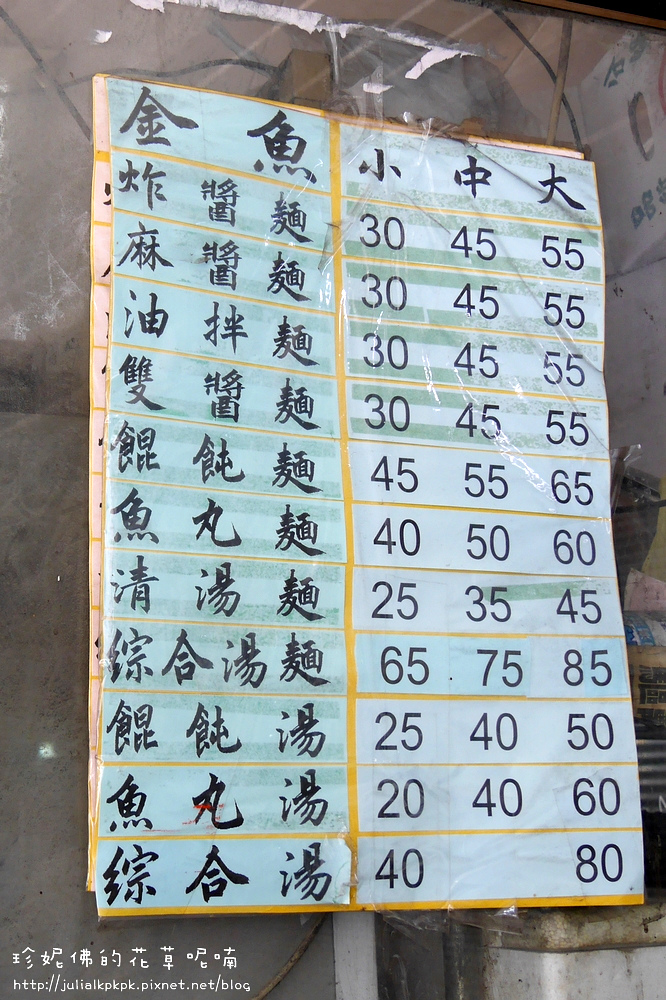 金魚 小 中 大
炸醬麵 30 45 55
麻醬麵 30 45 55
油拌麵 30 45 55
雙醬麵 30 45 55
餛飩麵 45 55 65
魚丸麵 40 50 60
清湯麵 25 35 45
綜合湯麵 65 75 85
餛飩湯 25 40 50
魚丸湯 20 40 60
綜合湯 40 80
珍妮佛的花草呢喃
http://julialkpkpk.pixnet.net/blog